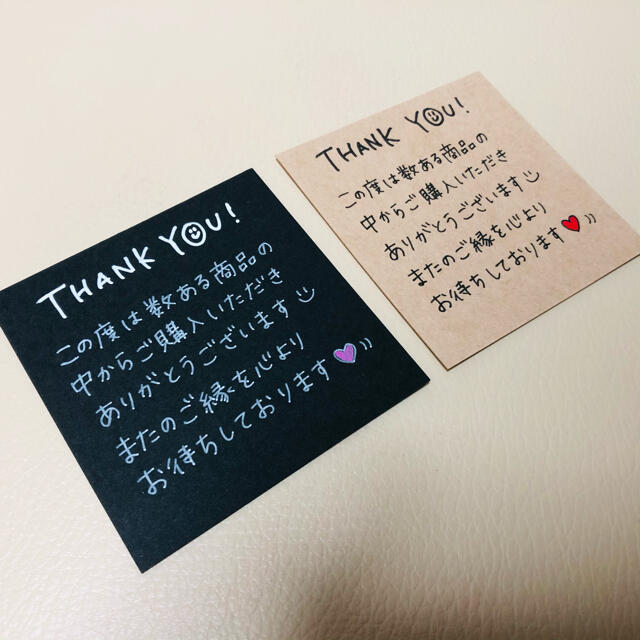 THANK YOU!
この度は数ある商品の
中からご購入いただき
ありがとうございます
またのご縁を心より
お待ちしております
THANK YOU!
この度は数ある商品の
中からご購入いただき
ありがとうございます
またのご縁を心より
お待ちしております